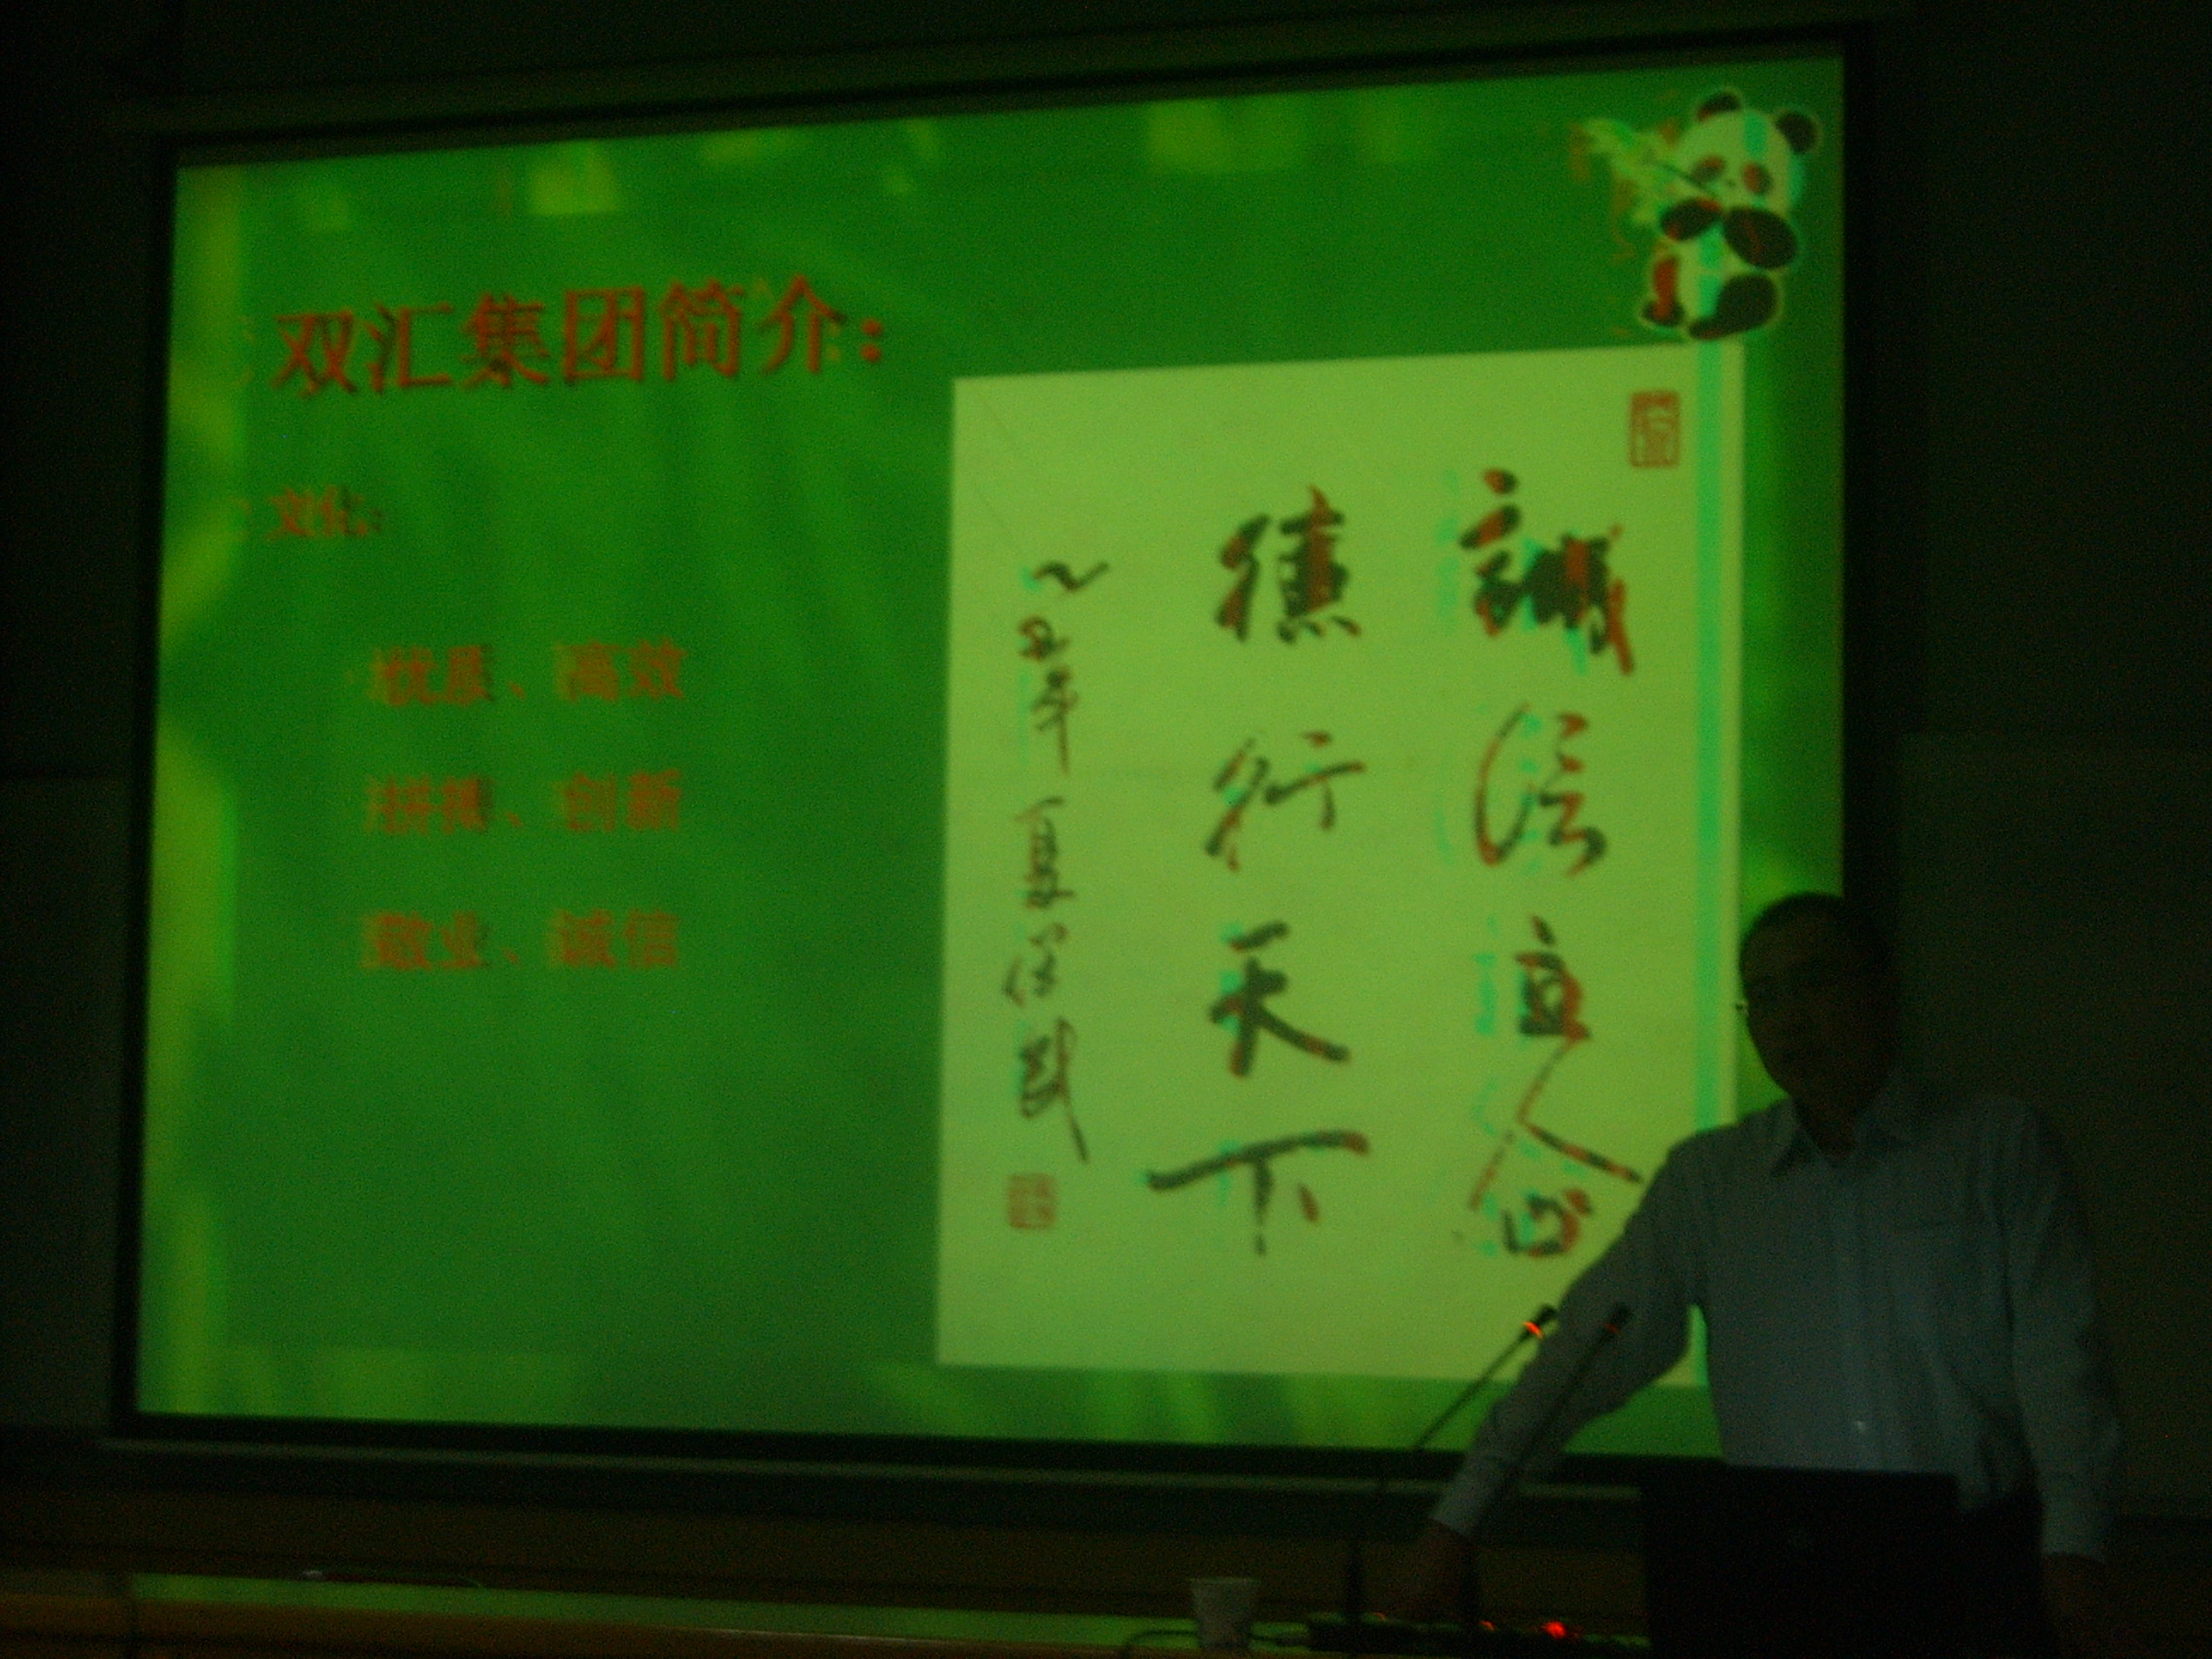 双汇集团简介：
文化：
优质、高效
拼搏、创新
敬业、诚信
誠信立企
德行天下
丑年夏